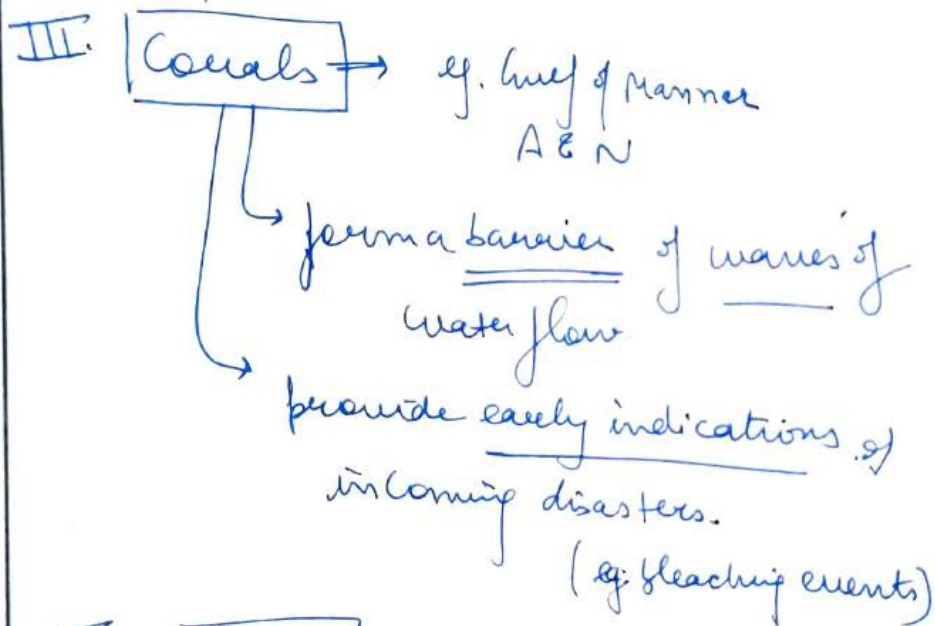 III. Corals → eg. Gulf of Mannar
A & N
form a barrier of waves of
water flow
provide early indications of
incoming disasters.
(eg: bleaching events)